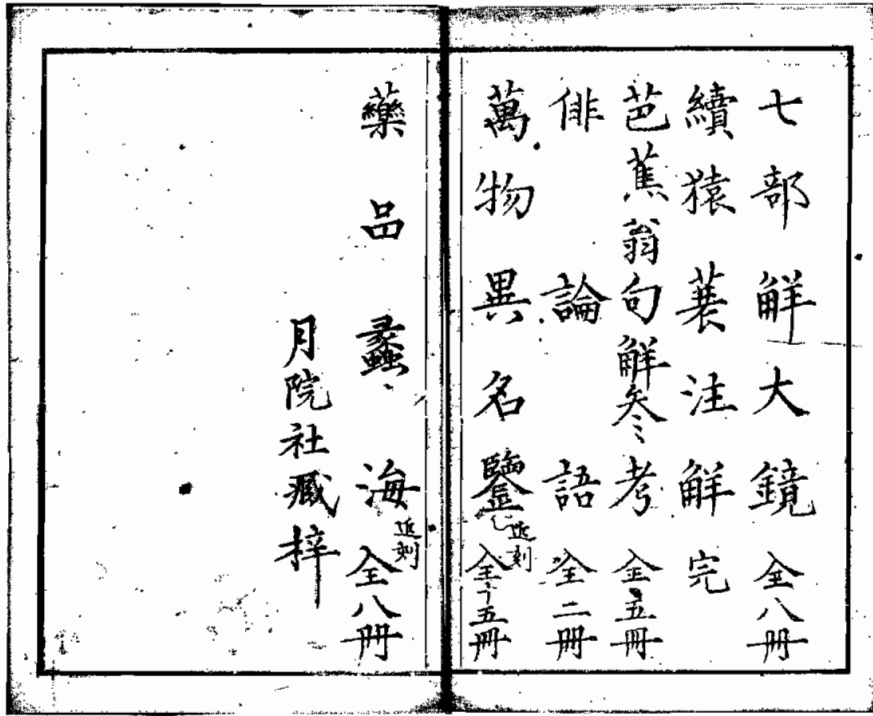 七部解大鏡 全八冊
續猿蓑注解 完
芭蕉翁句解参考 全五冊
俳論語 全二冊
萬物異名鑒 近刻 全十五冊
藥品蠡海 近刻 全八冊
月院社藏梓